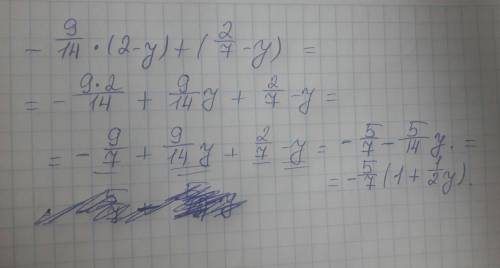 - 9/14 · (2-y) + (2/7 - y) =
= - 9·2/14 + 9/14 y + 2/7 - y =
= - 9/7 + 9/14 y + 2/7 - y = - 5/7 - 5/14 y. =
= - 5/7 (1 + 1/2 y).